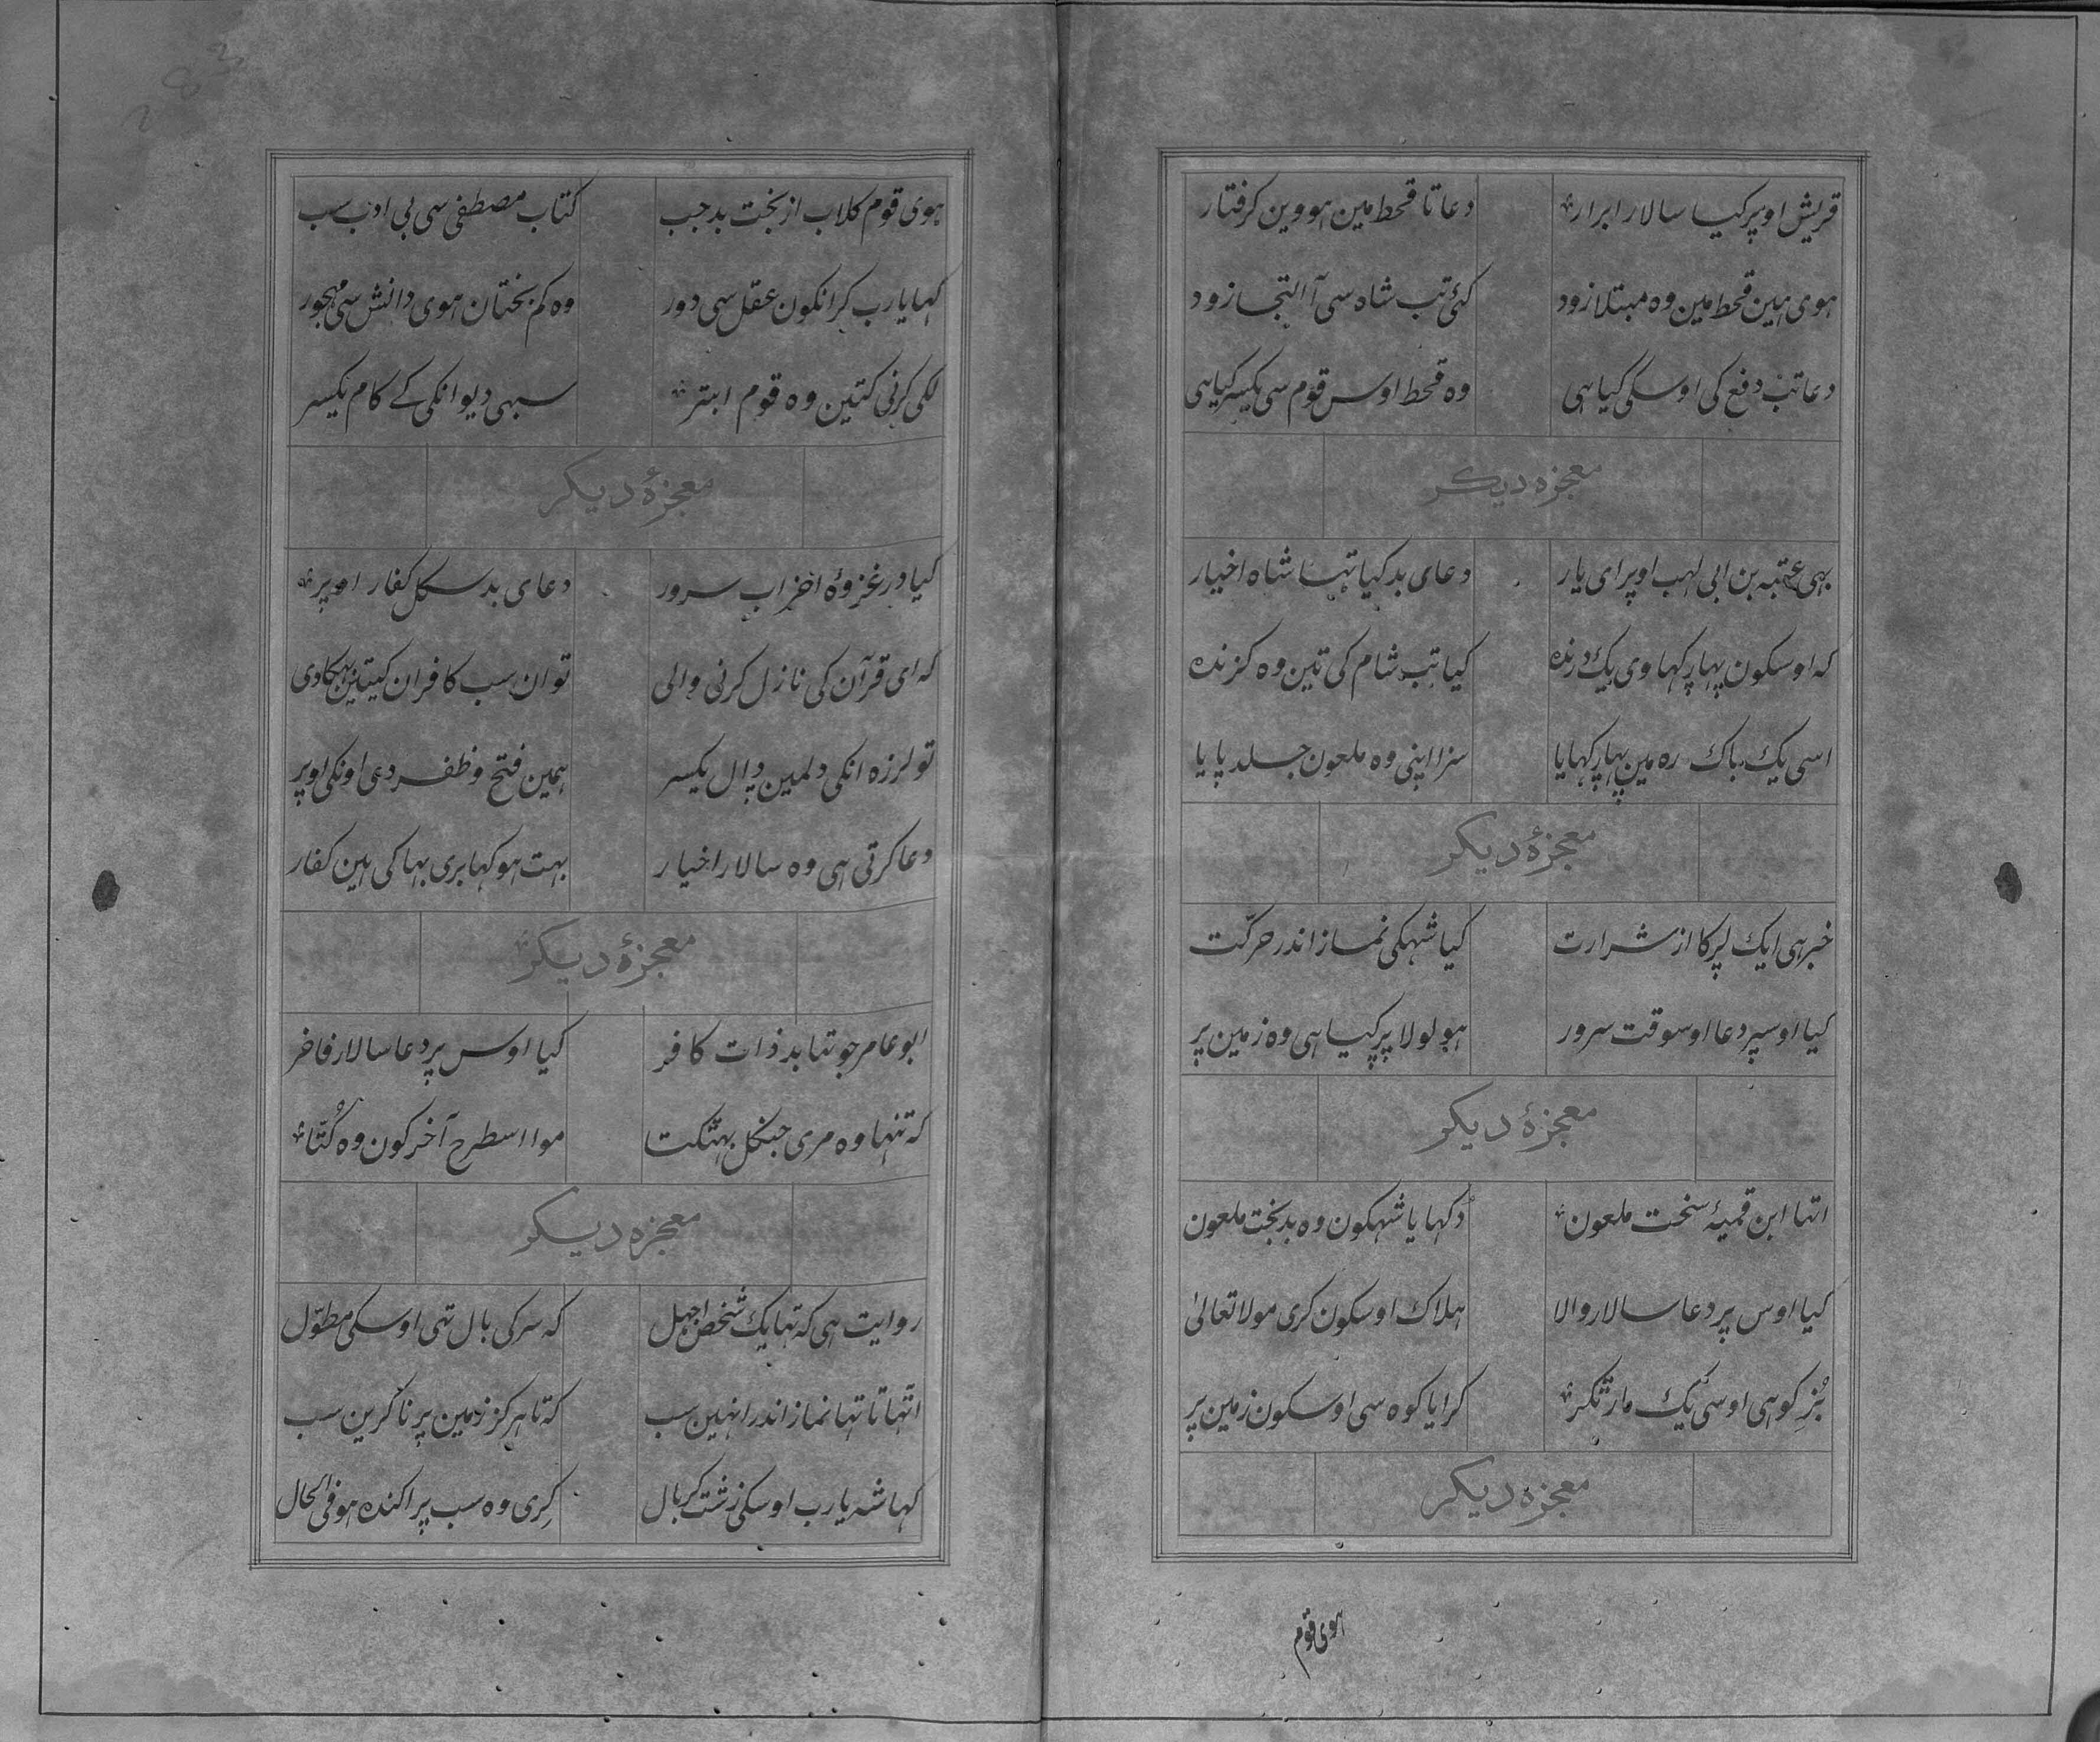 قریش اوپر کیا سالار ابرار دعا تا قحط مین هووین کرفتار
هوی هین قحط مین وه مبتلا زود کئی تب شاه سی آ التجا زود
دعا تب دفع کی اوسکی کیا هی وه قحط اوس قوم سی یکسر کیا هی
معجزه دیکر
بهی عتبه بن ابی لهب اوپر ای یار دعای بد کیا تها شاه اخیار
که اوسکون پهاڑ کهاوی یک درنده کیا تب شام کی تین وه کزنده
اسی یک باک ره مین پهاڑ کهایا سزا اپنی وه ملعون جلد پایا
معجزهٔ دیکر
خبر هی ایک لڑکا از شرارت کیا شهکی نماز اندر حرکت
کیا اوسپر دعا اوسوقت سرور هو لولا پڑ کیا هی وه زمین پر
معجزهٔ دیکر
اتها ابن قمیهٔ سخت ملعون دکهایا شهکون وه بدبخت ملعون
کیا اوس پر دعا سالار والا هلاک اوسکون کری مولا تعالیٰ
بُزِ کوهی اوسی یک مار ٹکر کرایا کوه سی اوسکون زمین پر
معجزه دیکر
هوی قوم
هوی قوم کلاب از بخت بد جب کتاب مصطفی سی بی ادب سب
کها یارب کر انکون عقل سی دور وه کم بختان هوی دانش سی مهجور
لکی کرنی کتین وه قوم ابتر سبهی دیوانکی کے کام یکسر
معجزهٔ دیکر
کیا در غزوهٔ احزاب سرور دعای بد سکل کفار اوپر
که ای قرآن کی نازل کرنی والی تو ان سب کافران کیتین بهکادی
تو لرزه انکی دلمین ڈال یکسر همین فتح و ظفر دی اونکی اوپر
دعا کرتی هی وه سالار اخیار بهت هو کهابری بهاکی هین کفار
معجزهٔ دیکر
ابو عامر جو تها بد ذات کافر کیا اوس پر دعا سالار فاخر
که تنها وه مری جنکل بهٹکتا موا اسطرح آخر کون وه کُتّا
معجزه دیکر
روایت هی که تها یک شخص اجهل که سر کی بال تهی اوسکی مطوّل
اٹهاتا تها نماز اندر انهین سب که تا هرکز زمین پر نا کرین سب
کها شه یارب اوسکی زشت کر بال کِری وه سب پراکنده هو فی الحال